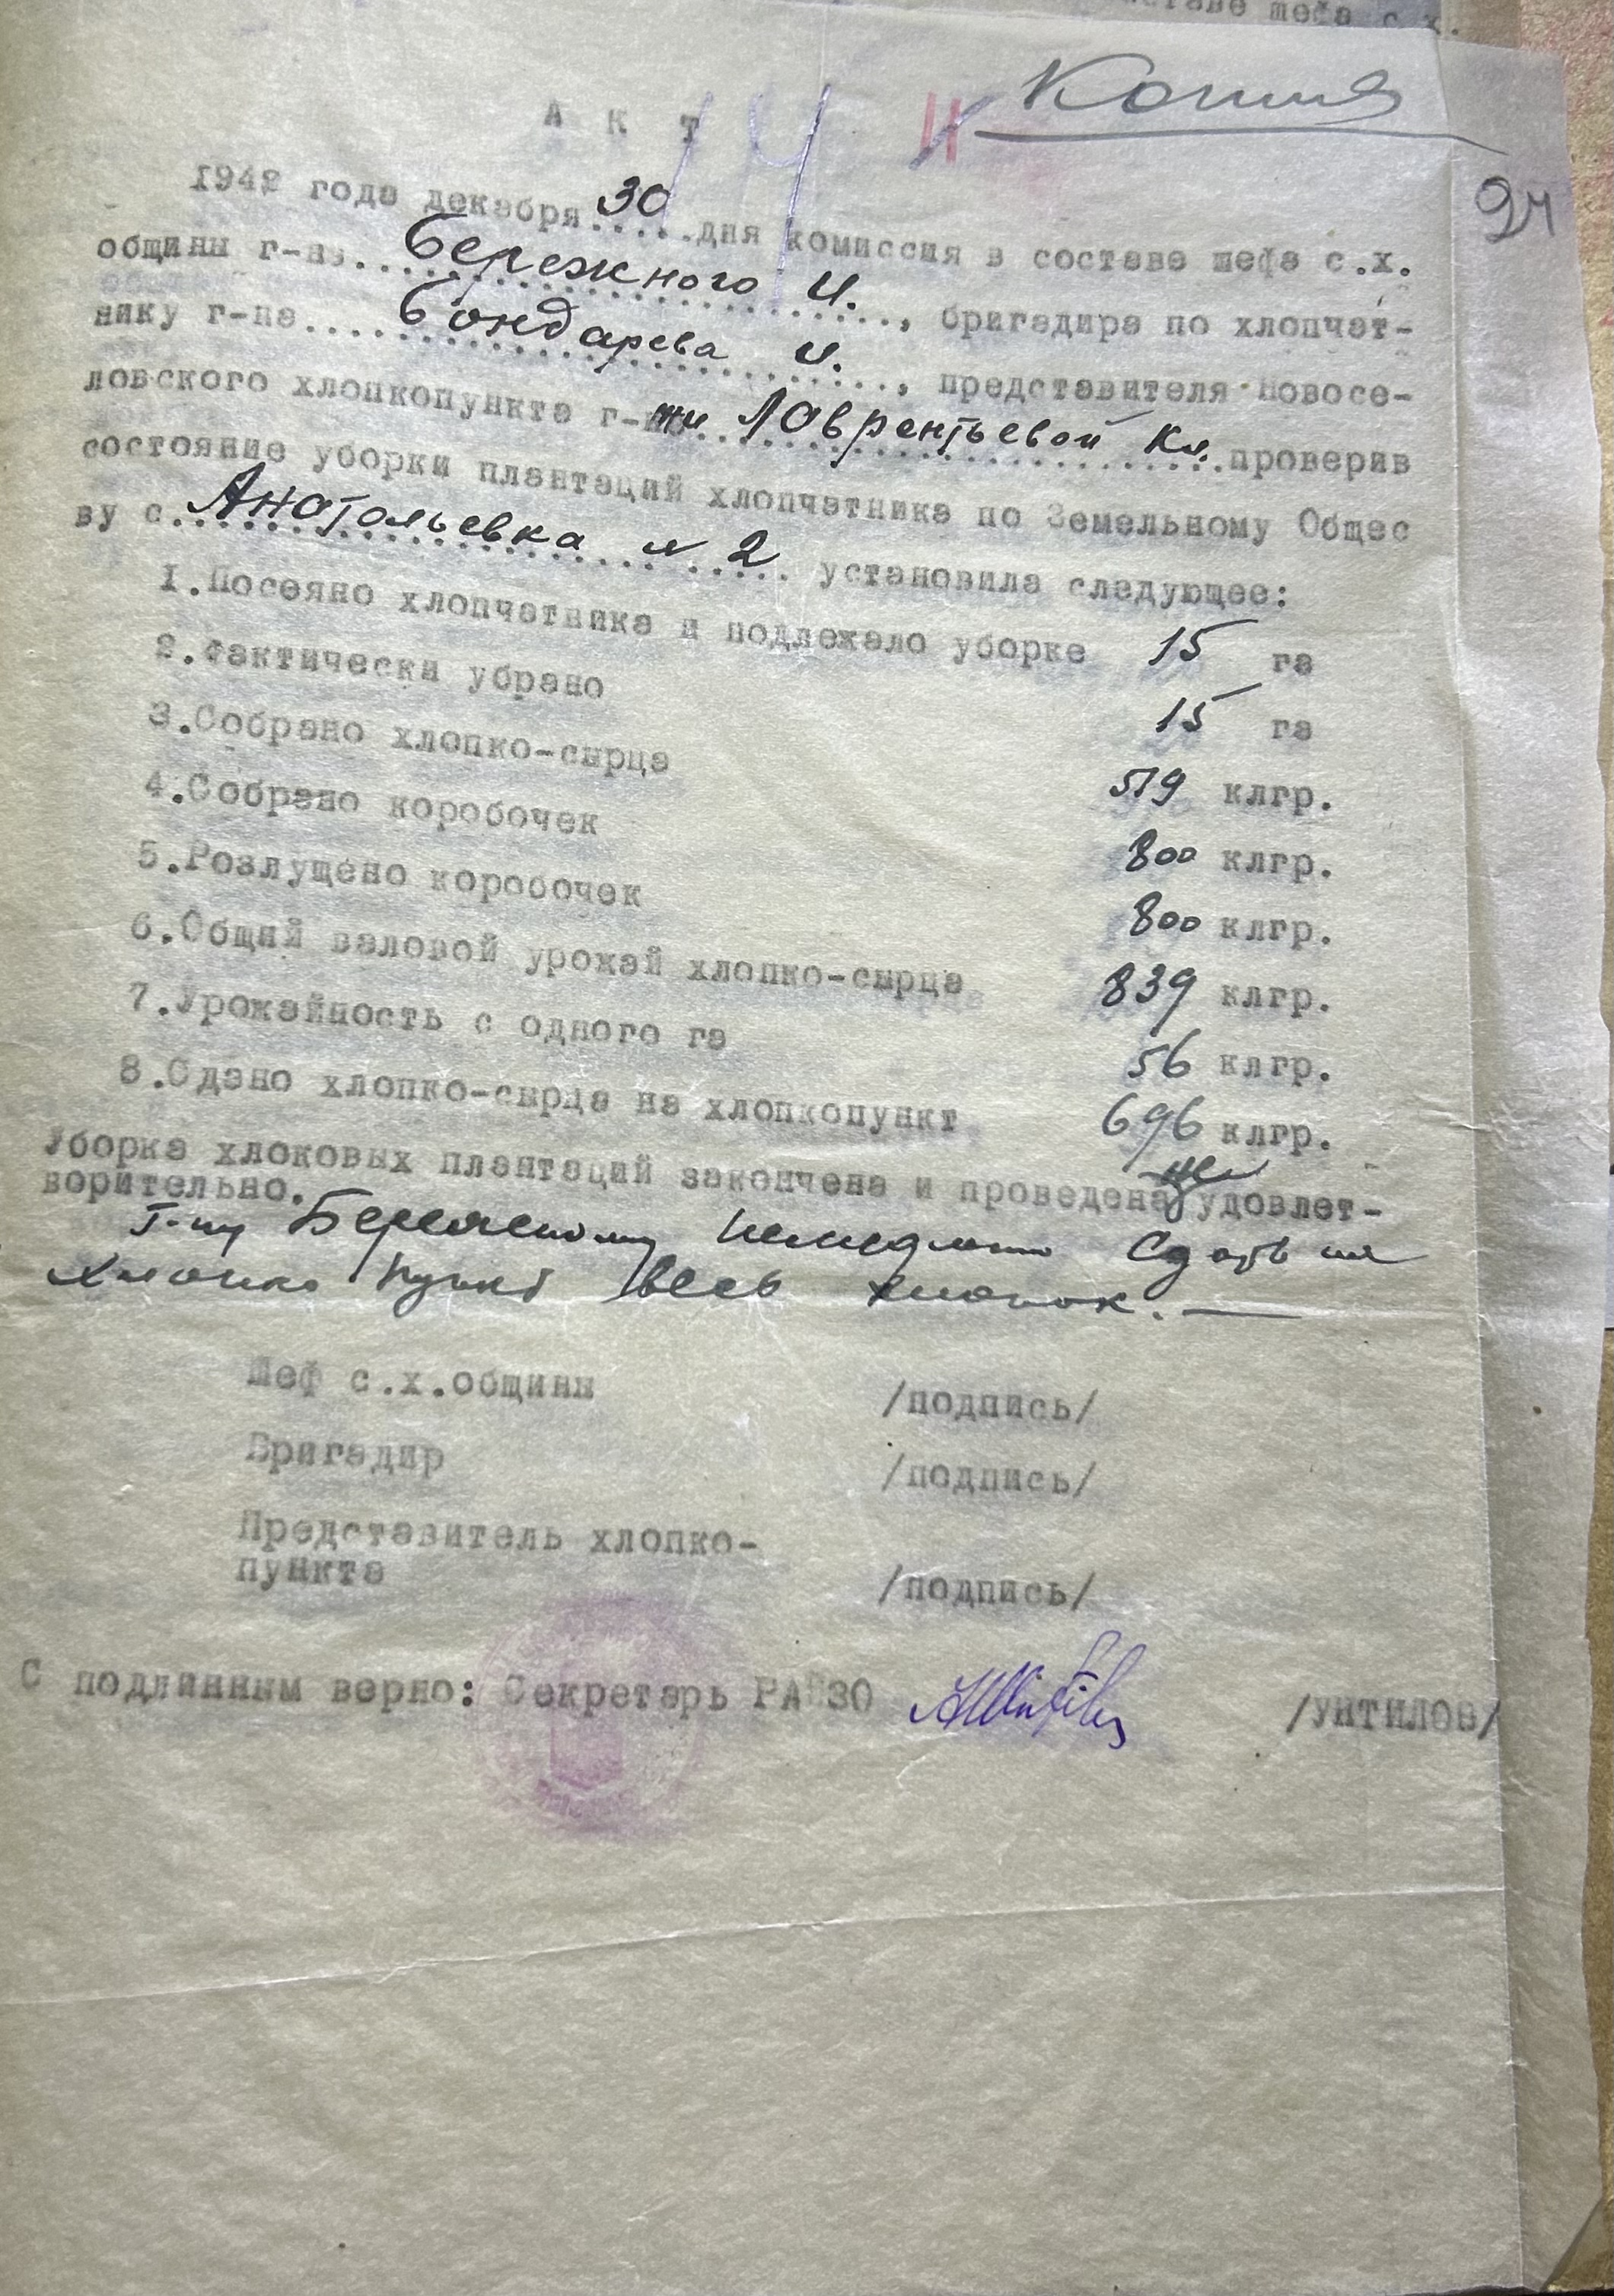 ставе шефа с.х.
Копия
А К Т
14
II
94
1942 года декабря 30 дня комиссия в составе шефа с.х.
общины г-на Бережного И., бригадира по хлопчат-
нику г-на Бондарева И., представителя Новосе-
ловского хлопкопункта г-жи Лаврентьевой Кл. проверив
состояние уборки плантаций хлопчатника по Земельному Общес
ву с. Анатольевка № 2 установила следующее:
1.Посеяно хлопчатника и подлежало уборке 15 га
2.Фактически убрано 15 га
3.Собрано хлопко-сырца 519 клгр.
4.Собрано коробочек 800 клгр.
5.Розлущено коробочек 800 клгр.
6.Общий валовой урожай хлопко-сырца 839 клгр.
7.Урожайность с одного га 56 клгр.
8.Сдано хлопко-сырца на хлопкопункт 696 клгр.
Уборка хлоковых плантаций закончена и проведена не удовлет-
ворительно.
Г-ну Бережному немедленно сдать на
хлопко пункт весь хлопок.
Шеф с.х.общины /подпись/
Бригадир /подпись/
Представитель хлопко-
пункта /подпись/
С подлинным верно: Секретарь РАЙЗО /УНТИЛОВ/